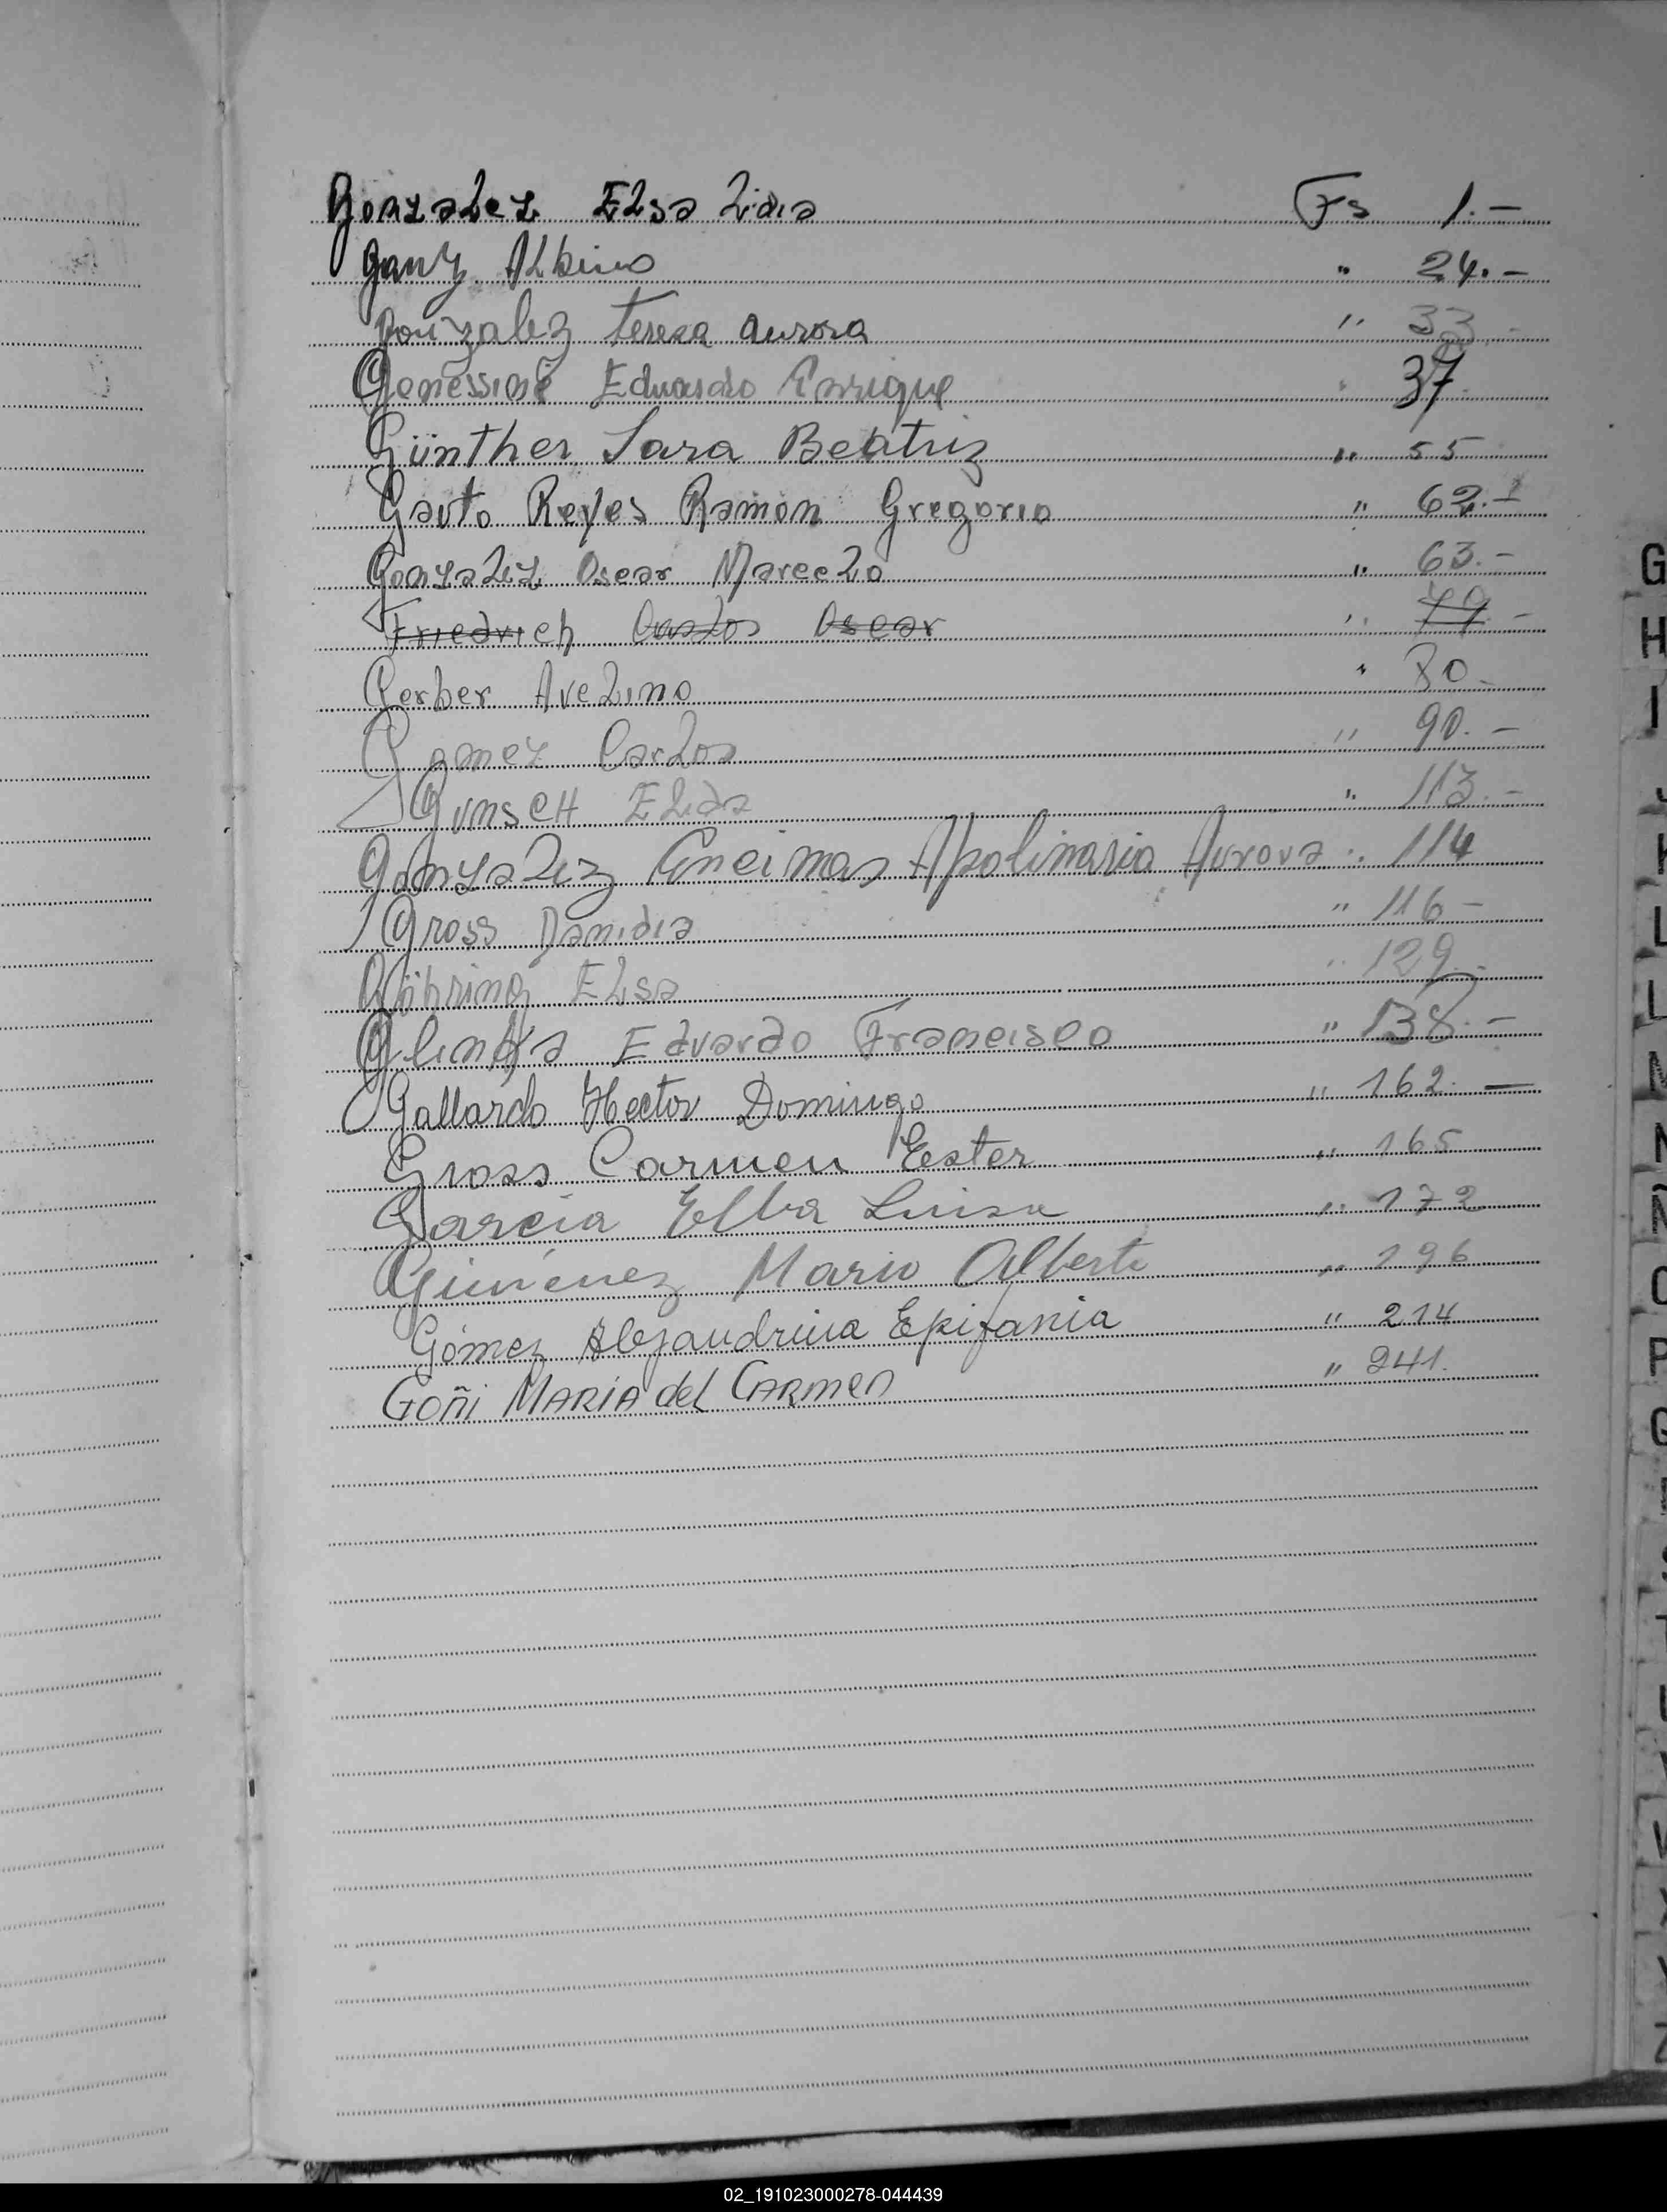 Gonzalez Elsa Lidia Fs 1.-
Ganz Albino " 24.-
Gonzalez Teresa Aurora " 33 -
Genessini Eduardo Enrique " 37
Günther Sara Beatriz " 55
Gauto Reyes Ramón Gregorio " 62.-
Gonzalez Oscar Marcelo " 63.-
Friedrich Carlos Oscar " 79 -
Gerber Avelino " 80 -
Gomez Carlos " 90. -
Gunsch Elda " 113. -
Gonzalez Encinas Apolinaria Aurora " 114
Gross Danidia " 116 -
Göhring Elsa " 129.
Glinka Eduardo Francisco " 138. -
Gallardo Hector Domingo " 162. —
Gross Carmen Ester " 165
García Elba Luisa " 172
Giménez Mario Alberto " 196
Gómez Alejandrina Epifania " 214
Goñi MARÍA del CARMEN " 241.
G
H
I
J
K
L
L
M
N
Ñ
O
P
Q
S
T
U
V
W
X
Y
Z
02_191023000278-044439